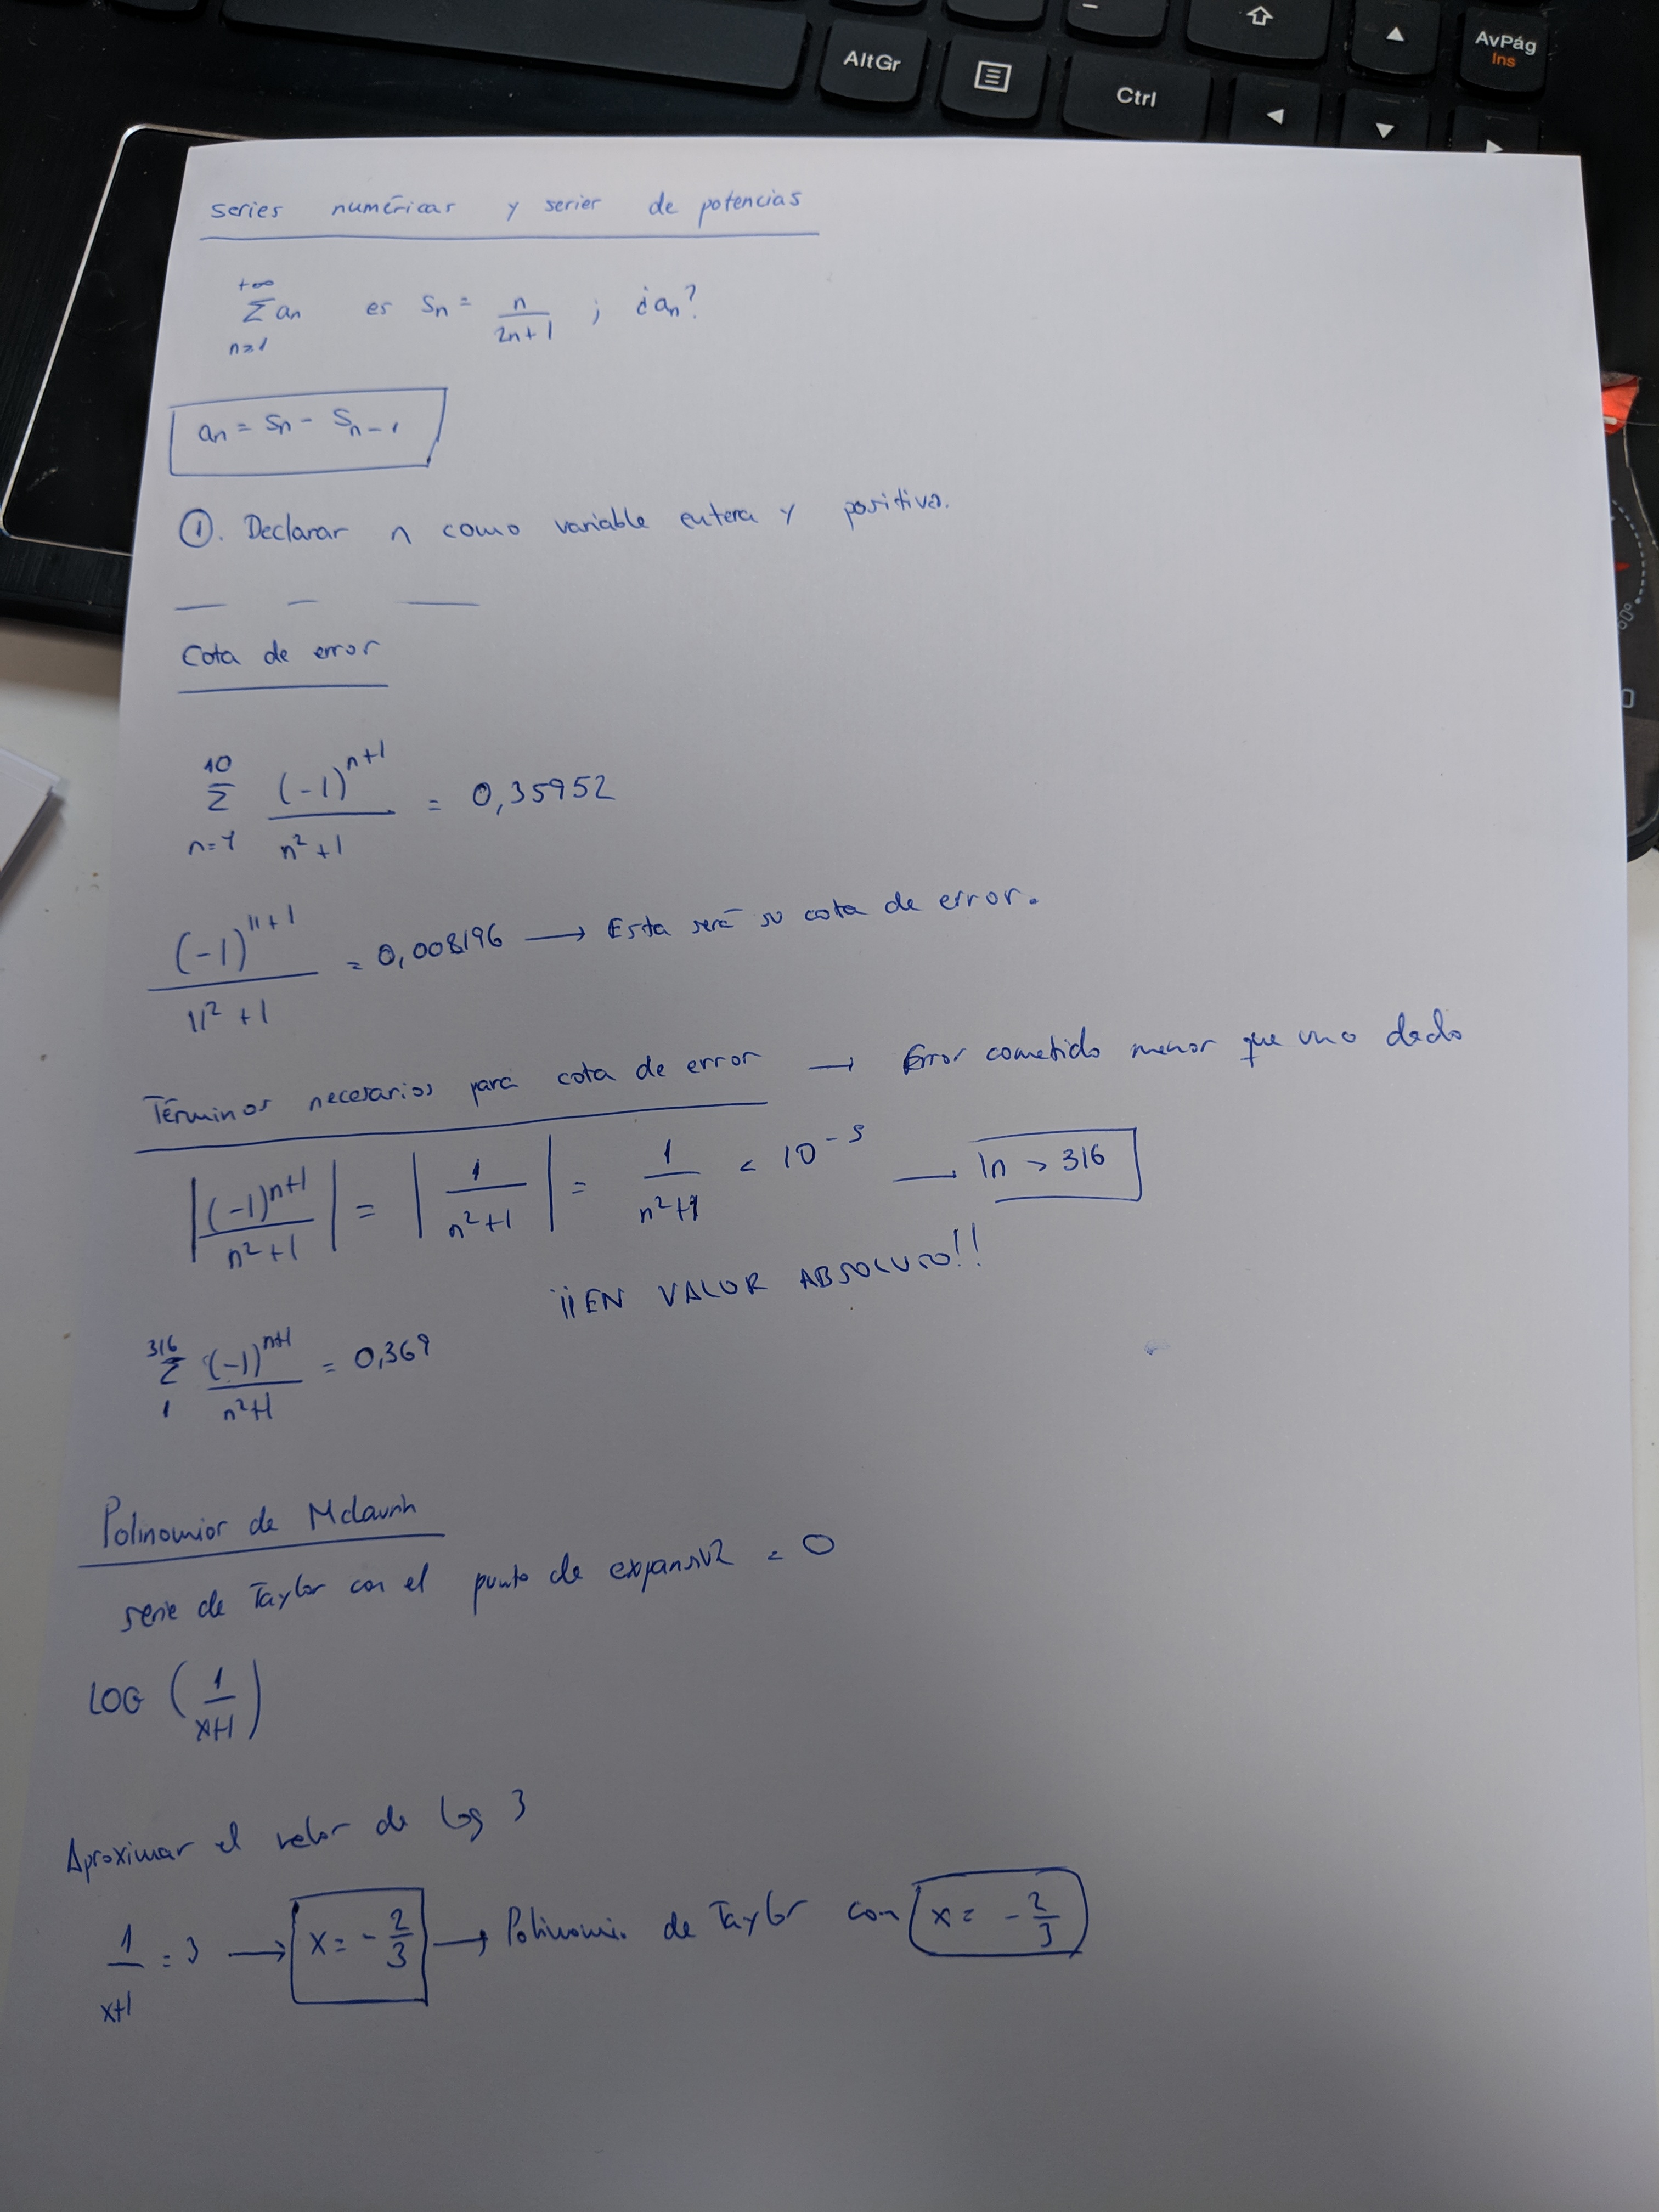 AltGr
Ctrl
AvPág
Ins
series numéricas y series de potencias
+∞
Σ an es Sn = n/(2n+1) ; ¿an?
n=1
an = Sn - Sn-1
①. Declarar n como variable entera y positiva.
Cota de error
10
Σ (-1)^(n+1)/(n²+1) = 0,35952
n=1
(-1)^(11+1)/(11²+1) = 0,008196 → Esta será su cota de error.
Términos necesarios para cota de error → Error cometido menor que uno dado
|(-1)^(n+1)/(n²+1)| = |1/(n²+1)| = 1/(n²+1) < 10^-5 → |n > 316
¡¡EN VALOR ABSOLUTO!!
316
Σ (-1)^(n+1)/(n²+1) = 0,369
1
Polinomios de Mclaurin
serie de Taylor con el punto de = 0
LOG (1/(x+1))
Aproximar el valor de log 3
1/(x+1) = 3 → x = -2/3 → Polinomio de Taylor con x = -2/3